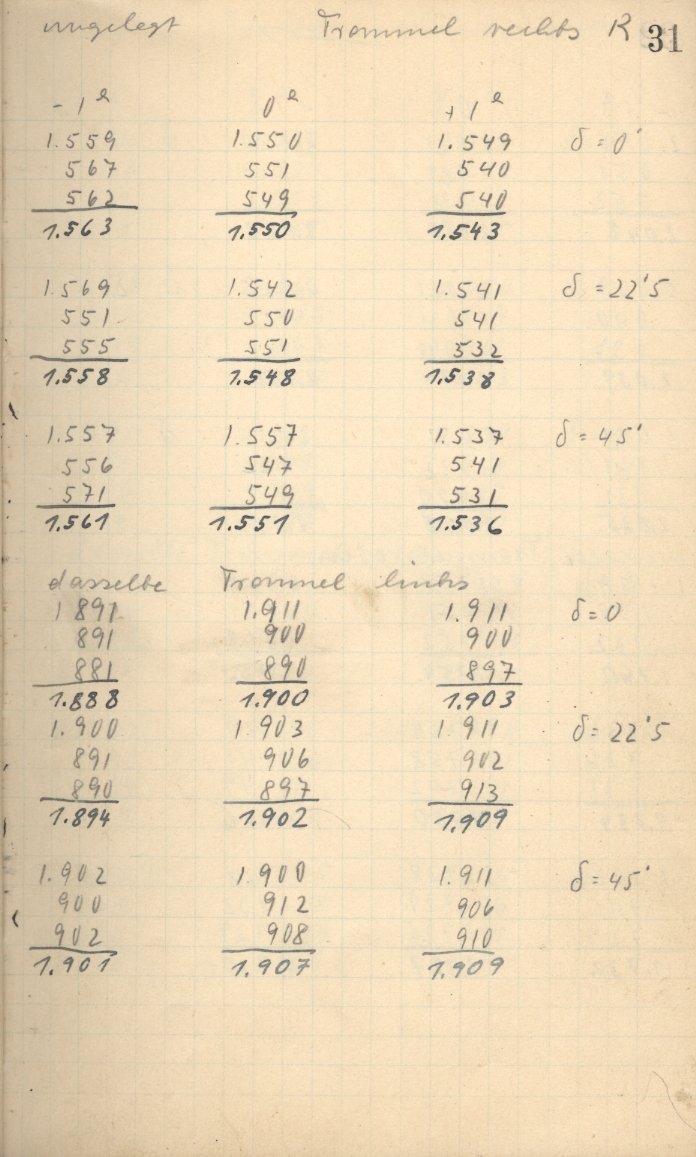 umgelegt Trommel rechts R 31
- 1ᵉ 0ᵉ + 1ᵉ
1.559 1.550 1.549 δ = 0'
567 551 540
562 549 540
1.563 1.550 1.543
1.569 1.542 1.541 δ = 22'5
551 550 541
555 551 532
1.558 1.548 1.538
1.557 1.557 1.537 δ = 45'
556 547 541
571 549 531
1.561 1.551 1.536
dasselbe Trommel links
1 891 1.911 1.911 δ = 0
891 900 900
881 890 897
1.888 1.900 1.903
1.900 1 903 1 911 δ = 22'5
891 906 902
890 897 913
1.894 1.902 1.909
1.902 1.900 1.911 δ = 45'
900 912 906
902 908 910
1.901 1.907 1.909